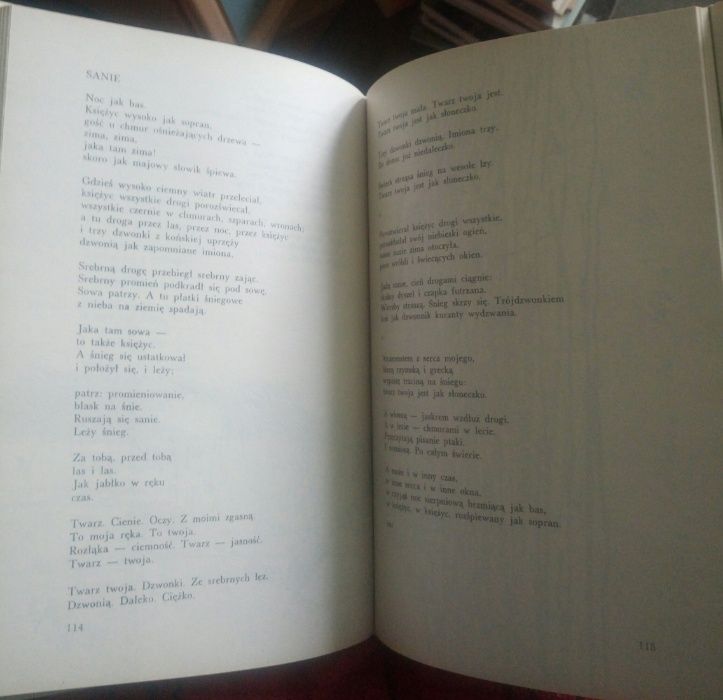 SANIE
Noc jak bas.
Księżyc wysoko jak sopran,
gość u chmur ośnieżających drzewa —
zima, zima,
jaka tam zima!
skoro jak majowy słowik śpiewa.
Gdzieś wysoko ciemny wiatr przeleciał,
księżyc wszystkie drogi porozświecał,
wszystkie czernie w chmurach, szparach, wronach;
a tu droga przez las, przez noc, przez księżyc
i trzy dzwonki z końskiej uprzęży
dzwonią jak zapomniane imiona.
Srebrną drogę przebiegł srebrny zając.
Srebrny promień podkradł się pod sowę.
Sowa patrzy. A tu płatki śniegowe
z nieba na ziemię spadają.
Jaka tam sowa —
to także księżyc.
A śnieg się ustatkował
i położył się, i leży;
patrz: promieniowanie,
blask na śnie.
Ruszają się sanie.
Leży śnieg.
Za tobą, przed tobą
las i las.
Jak jabłko w ręku
czas.
Twarz. Cienie. Oczy. Z moimi zgasną.
To moja ręka. To twoja.
Rozłąka — ciemność. Twarz — jasność.
Twarz — twoja.
Twarz twoja. Dzwonki. Ze srebrnych łez.
Dzwonią. Daleko. Ciężko.
114
Twarz twoja mała. Twarz twoja jest.
Twarz twoja jest jak słoneczko.
Trzy dzwonki dzwonią. Imiona trzy.
Do domu już niedaleczko.
śnieg na wesołe łzy.
Twarz twoja jest jak słoneczko.
księżyc drogi wszystkie,
swój niebieski ogień,
sanie zima otoczyła,
wróbli i świecących okien.
Jadą sanie, cień drogami ciągnie:
dyszel i czapka futrzana.
Wierzby straszą. Śnieg skrzy się. Trójdzwonkiem
jak dzwonnik kuranty wydzwania.
z serca mojego,
rzymską i grecką
trzciną na śniegu:
twarz twoja jest jak słoneczko.
A wiosną — jaskrem wzdłuż drogi.
A w lecie — chmurami w lecie.
pisanie ptaki.
I poniosą. Po całym świecie.
A może i w inny czas,
w inne serca i w inne okna,
noc sierpniową brzmiącą jak bas,
w księżyc, w księżyc, rozśpiewany jak sopran.
115